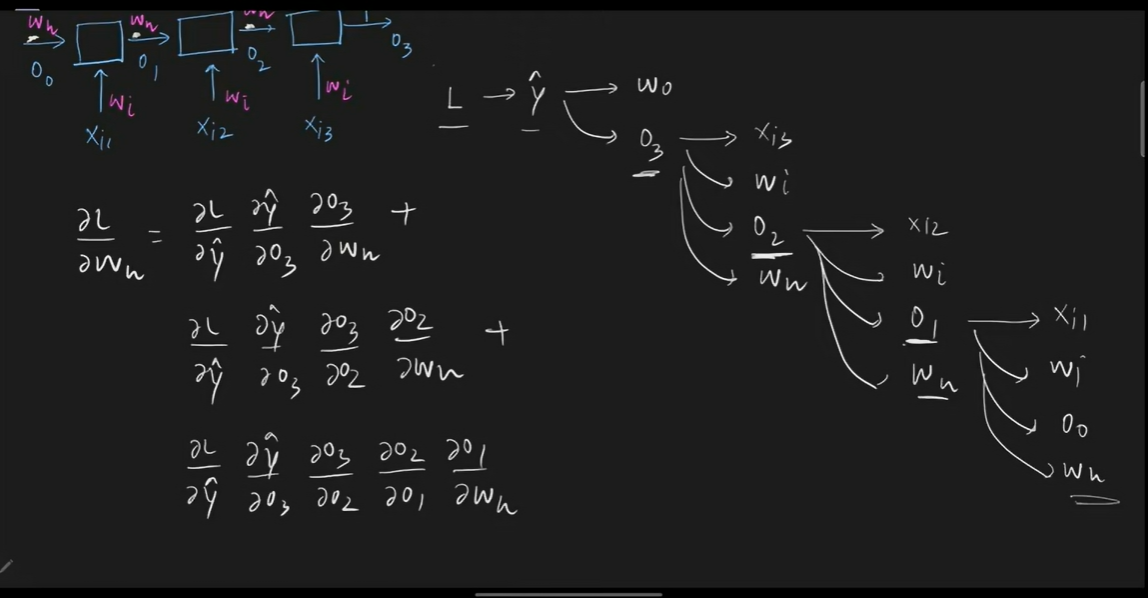 Wh Wh Wh
O0 O1 O2 O3
Wi Wi Wi
Xi1 Xi2 Xi3
L → Ŷ → W0
O3 → Xi3
Wi
O2 → Xi2
Wh
Wi
O1 → Xi1
Wh
Wi
O0
Wh
∂L/∂Wh = ∂L/∂Ŷ ∂Ŷ/∂O3 ∂O3/∂Wh +
∂L/∂Ŷ ∂Ŷ/∂O3 ∂O3/∂O2 ∂O2/∂Wh +
∂L/∂Ŷ ∂Ŷ/∂O3 ∂O3/∂O2 ∂O2/∂O1 ∂O1/∂Wh